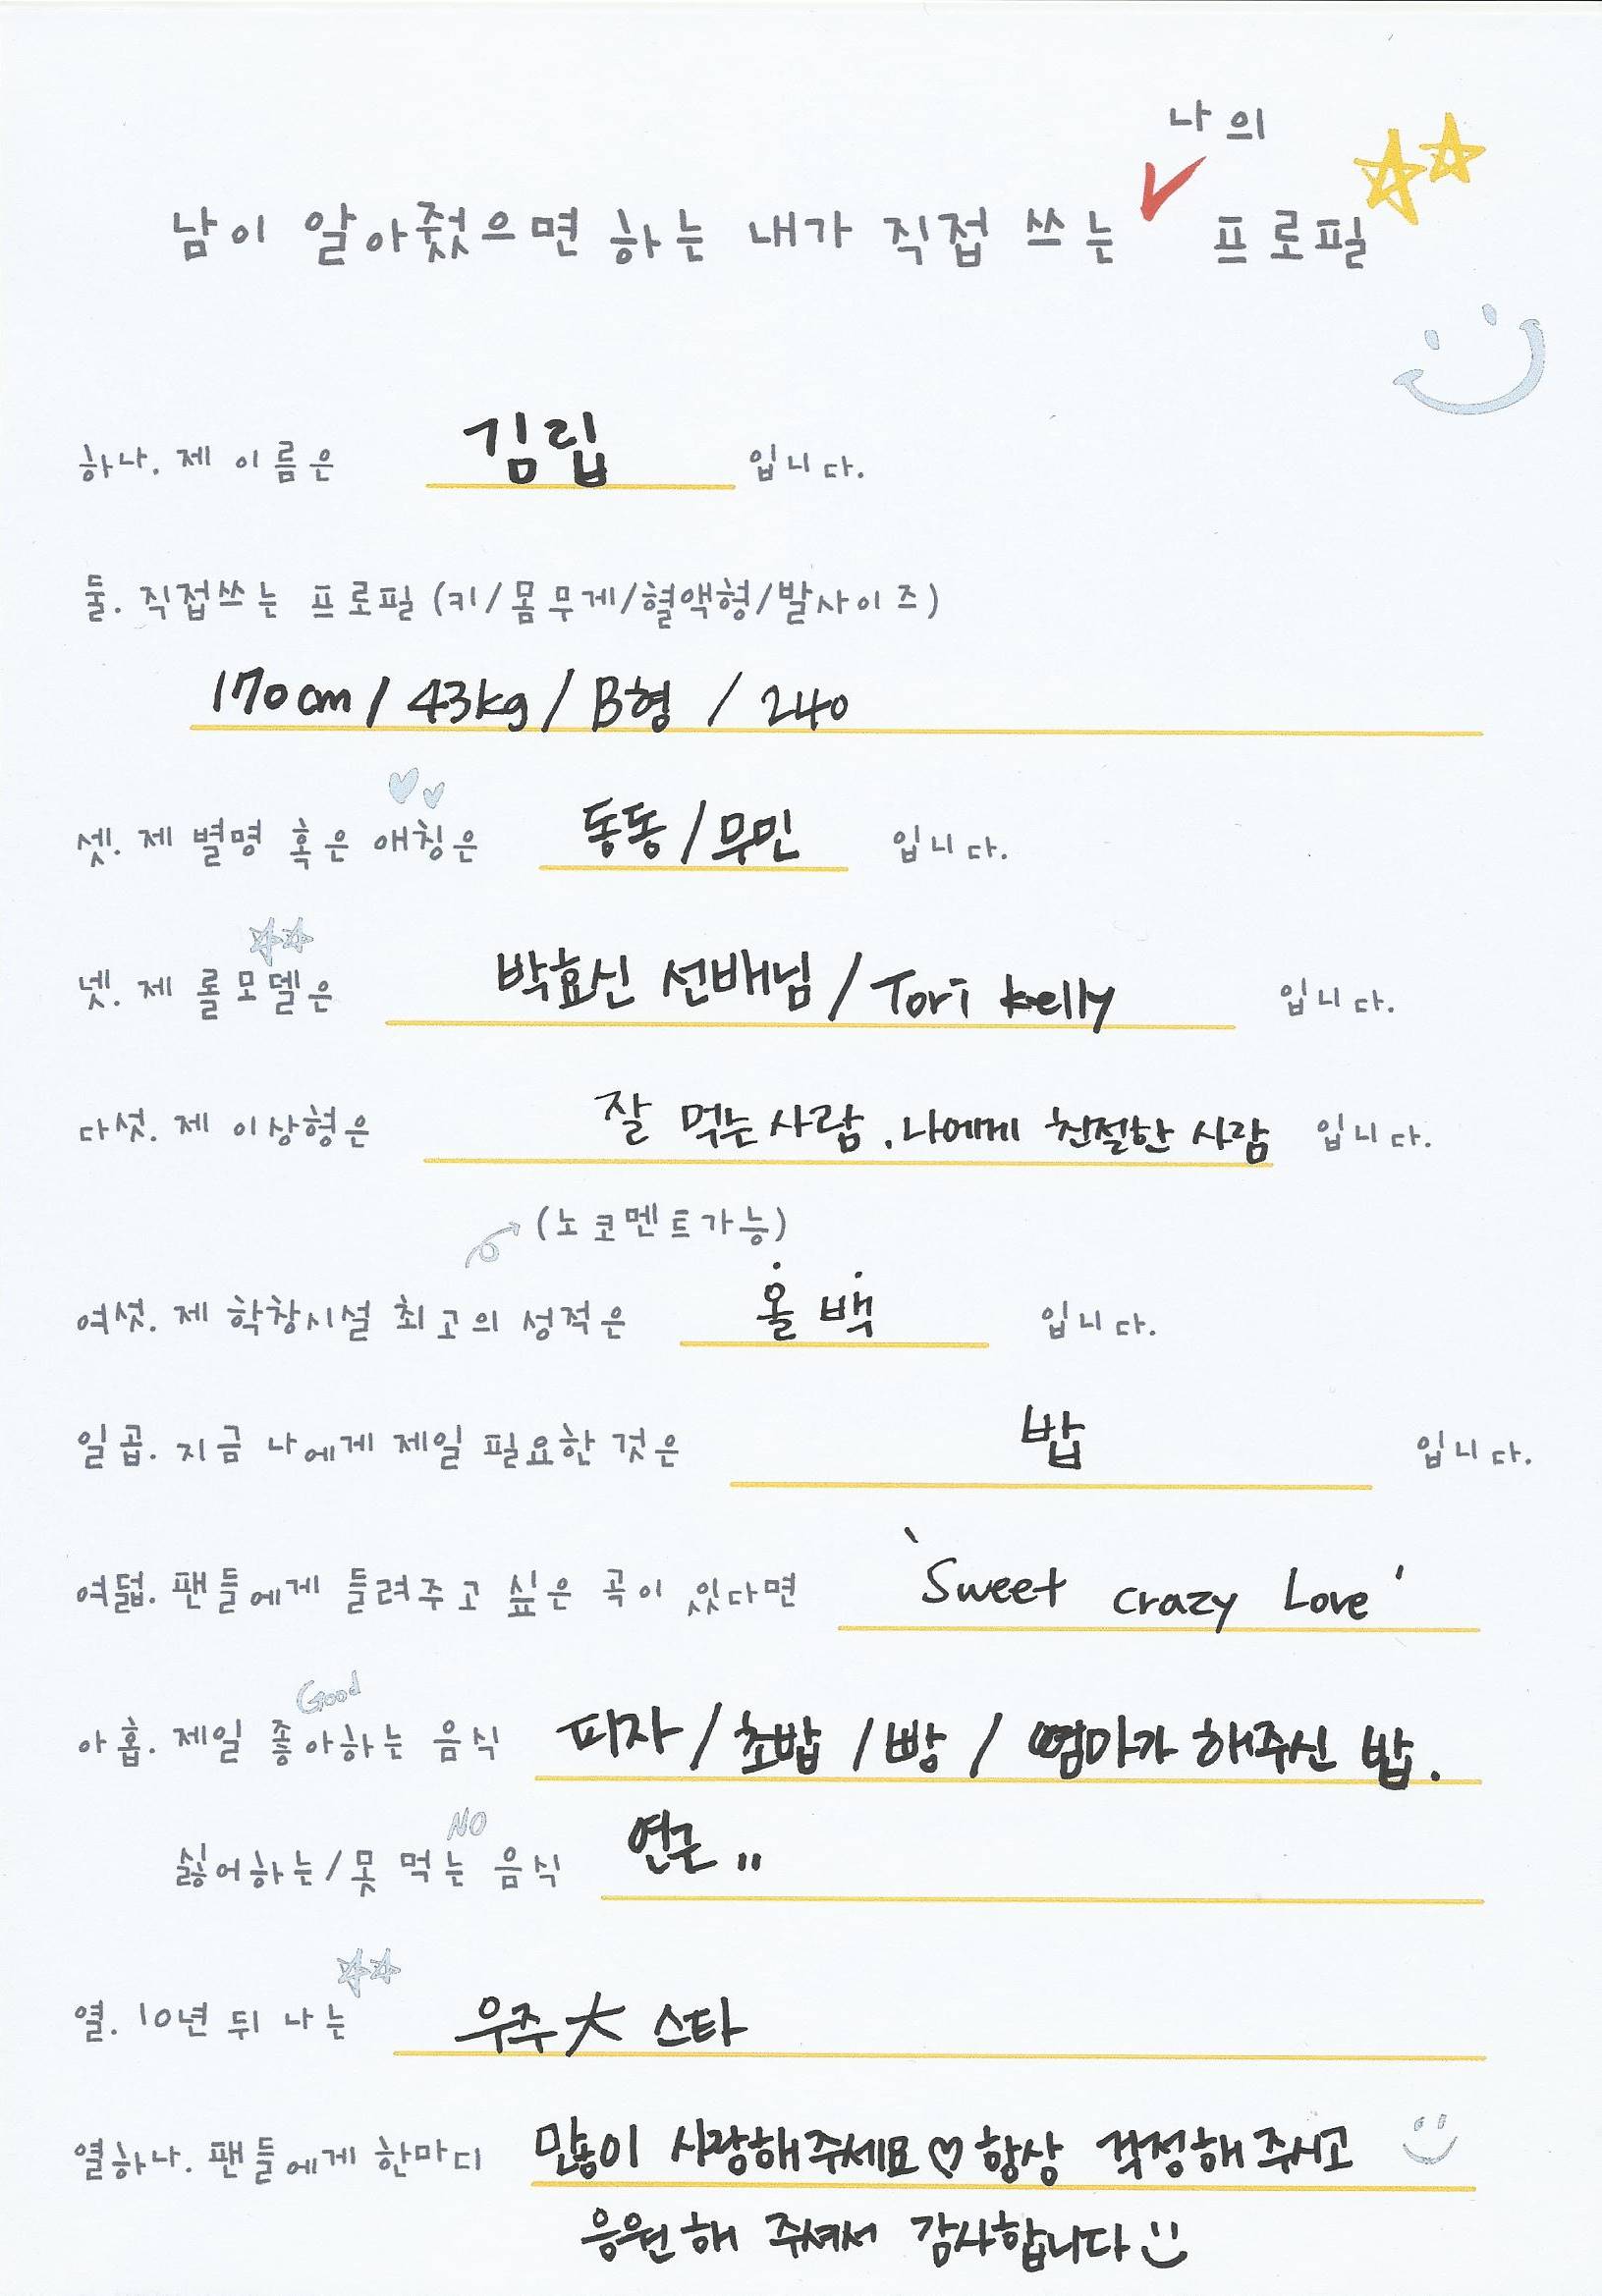 나의
남이 알아줬으면 하는 내가 직접 쓰는 프로필
하나. 제 이름은 김립 입니다.
둘. 직접쓰는 프로필 (키/몸무게/혈액형/발사이즈)
170cm / 43kg / B형 / 240
셋. 제 별명 혹은 애칭은 동동/무민 입니다.
넷. 제 롤모델은 박효신 선배님 / Tori kelly 입니다.
다섯. 제 이상형은 잘 먹는 사람, 나에게 친절한 사람 입니다.
(노코멘트가능)
여섯. 제 학창시설 최고의 성적은 올백 입니다.
일곱. 지금 나에게 제일 필요한 것은 밥 입니다.
여덟. 팬들에게 들려주고 싶은 곡이 있다면 'Sweet crazy Love'
Good
아홉. 제일 좋아하는 음식 피자 / 초밥 / 빵 / 엄마가 해주신 밥.
NO
싫어하는/못 먹는 음식 연근..
열. 10년 뒤 나는 우주大 스타
열하나. 팬들에게 한마디 많이 사랑해주세요♡항상 걱정해 주시고
응원해 주셔서 감사합니다